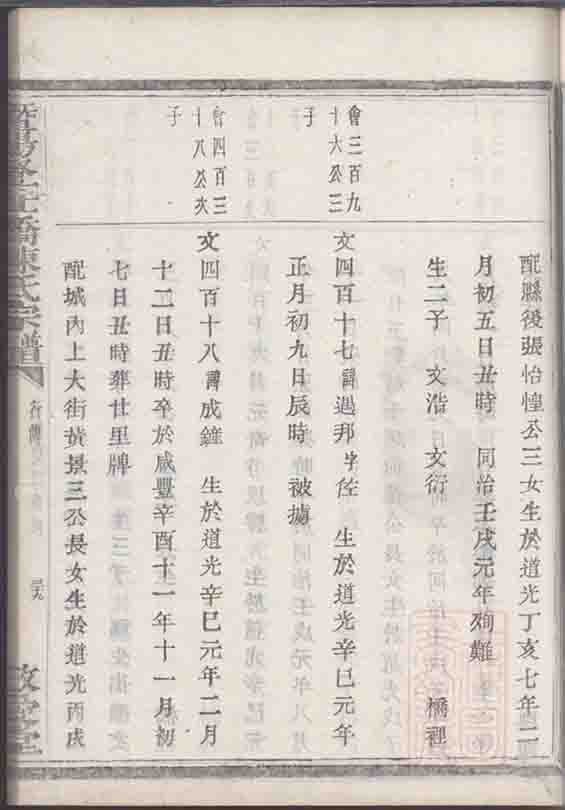 配縣後張怡惶公三女生於道光丁亥七年二
月初五日丑時 同治壬戌元年殉難 橋裡
生二子 文浩 文衍
會三百九
十六公三
子
文四百十七諱遇邦字佐 生於道光辛巳元年
正月初九日辰時被擄
會四百三
十八公次
子
文四百十八諱成鐘 生於道光辛巳元年二月
十二日丑時卒於咸豐辛酉十一年十一月初
七日丑時葬廿里牌
配城內上大街黃景三公長女生於道光丙戌
橋陳氏宗譜
行傳